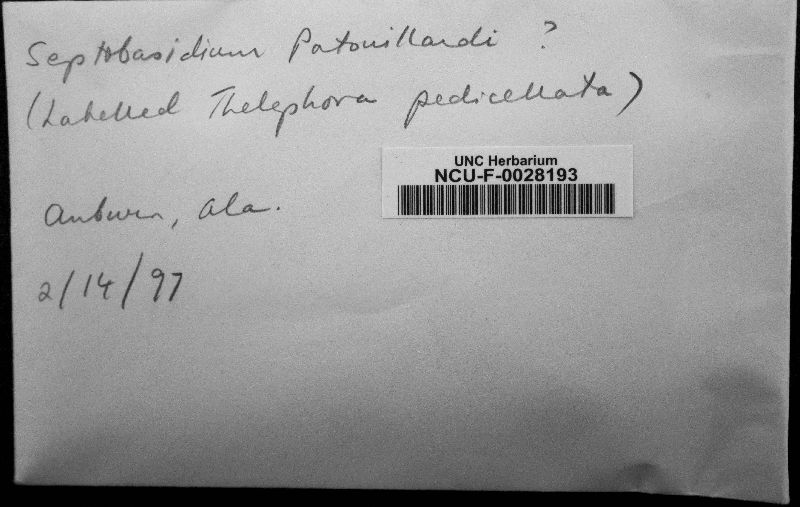 Septobasidium Patouillardi ?
(Labelled Thelephora pedicellata)
UNC Herbarium
NCU-F-0028193
Auburn, Ala.
2/14/97